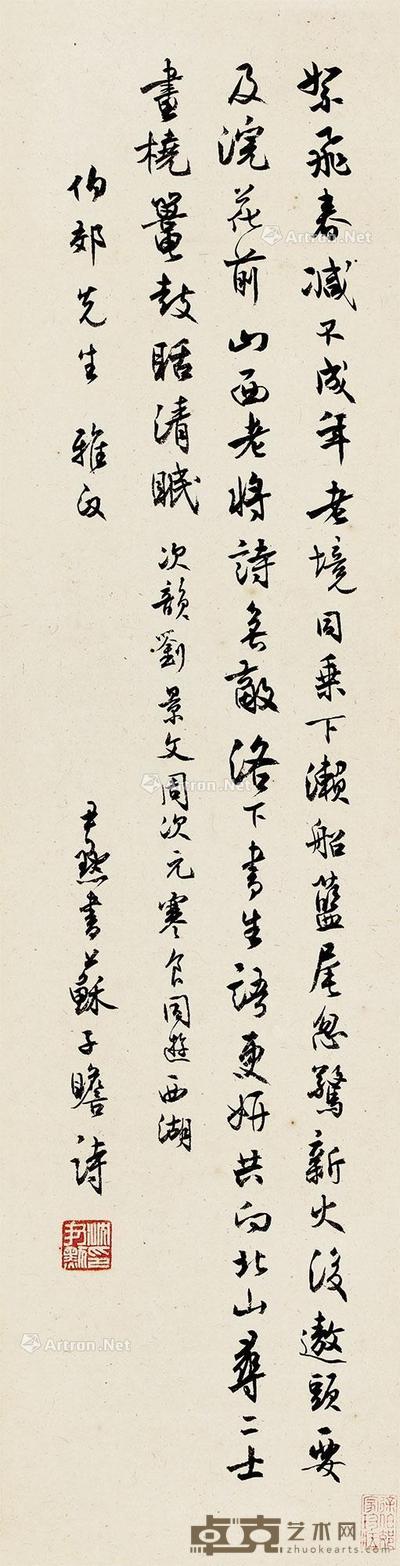 絮飛春減不成年老境同乗下瀬船藍尾忽驚新火後遨頭要
及浣花前山西老將詩無敵洛下書生語更妍共向北山尋二士
畫橈鼉鼓聒清眠 次韻劉景文周次元寒食同遊西湖
伯郊先生 雅正
尹默書蘇子瞻詩
Artron.Net
Artron.Net
Artron.Net
Artron.Net
卓克艺术网
www.zhuokearts.com